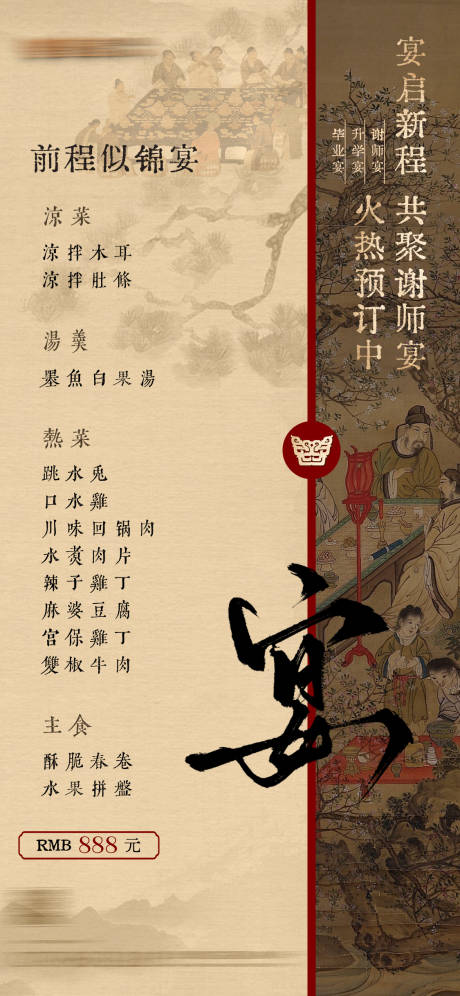 宴启新程 共聚谢师宴
火热预订中
谢师宴
升学宴
毕业宴
前程似锦宴
涼菜
涼拌木耳
涼拌肚條
湯羹
墨魚白果湯
熱菜
跳水兎
口水雞
川味回锅肉
水煑肉片
辣子雞丁
麻婆豆腐
宫保雞丁
雙椒牛肉
主食
酥脆春卷
水果拼盤
RMB 888 元
宴